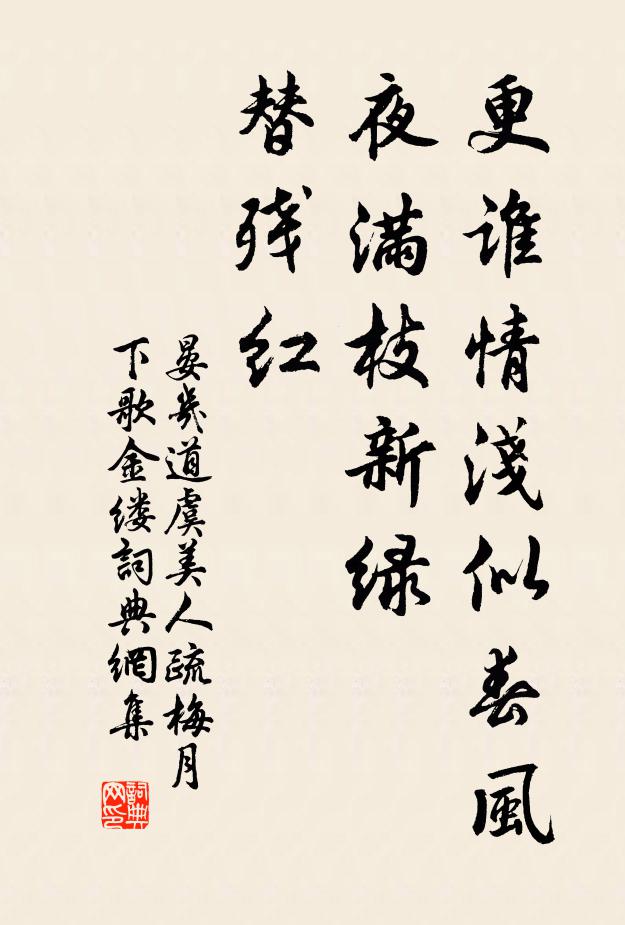 更谁情淺似春風
夜滿枝新绿
替残红
晏幾道虞美人疏梅月
下歌金缕詞典網集
詞典网印